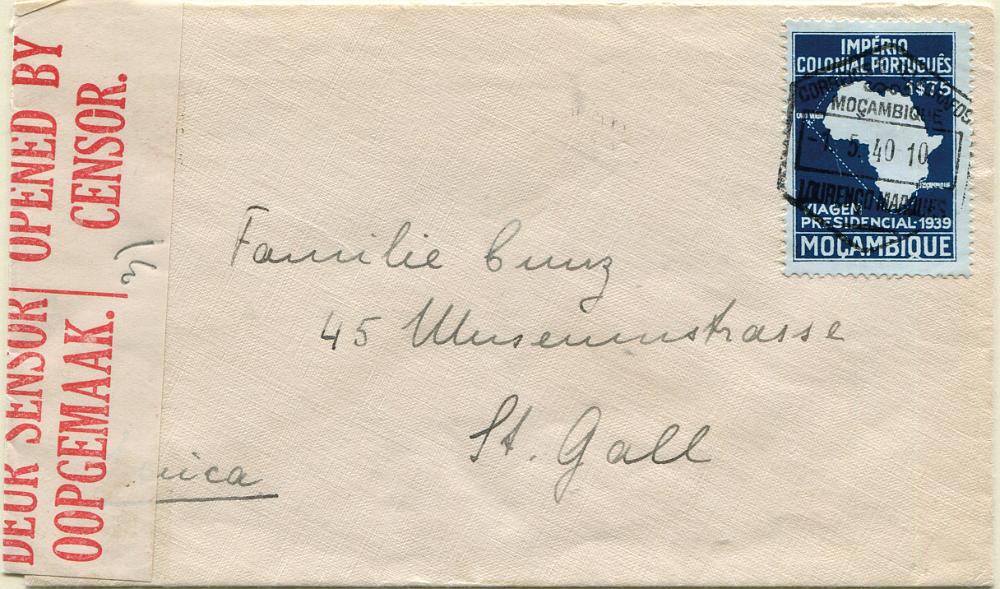 DEUR SENSOR OPENED BY
OOPGEMAAK. CENSOR.
IMPÉRIO
COLONIAL PORTUGUÊS
1$75
MOÇAMBIQUE
-1. 5. 40 10
LOURENÇO MARQUES
VIAGEM
PRESIDENCIAL-1939
MOÇAMBIQUE
Familie
45 Museumstrasse
St. Gall